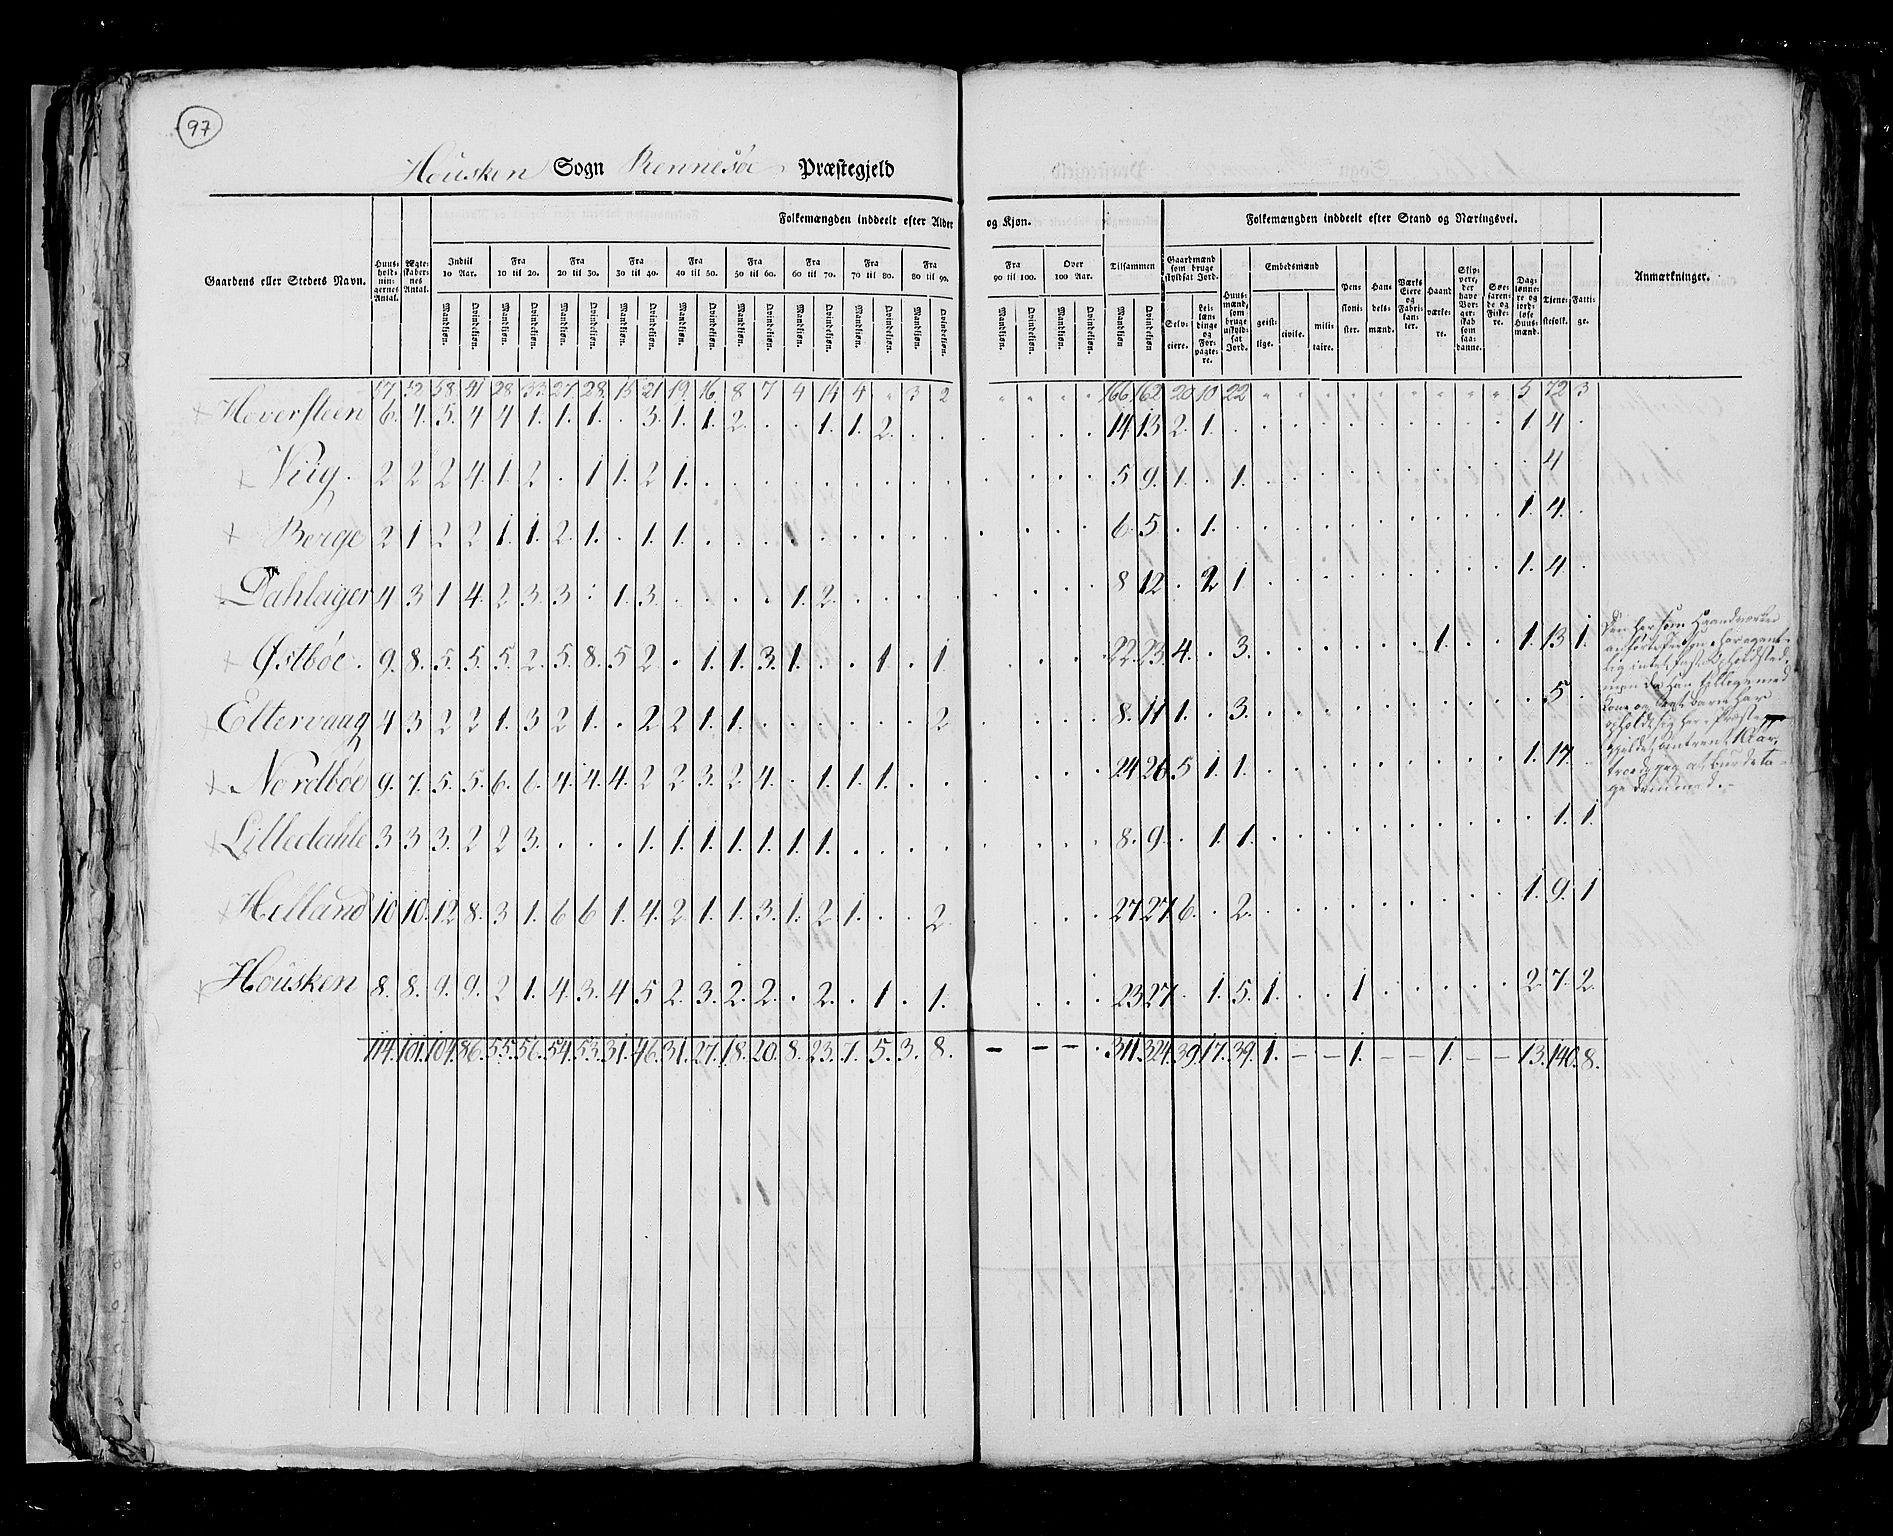 97
Housken Sogn Rennesöe Præstegjeld
Folkemængden inddeelt efter Alder og Kjøn. Tilsammen Folkemængden inddeelt efter Stand og Næringsvei.
Gaardens eller Stedets Navn. Huusholdningernes Antal. Ægteskabernes Antal. Indtil 10 Aar. Fra 10 til 20. Fra 20 til 30. Fra 30 til 40. Fra 40 til 50. Fra 50 til 60. Fra 60 til 70. Fra 70 til 80. Fra 80 til 90. Fra 90 til 100. Over 100 Aar. Gaardmænd som bruge skyldsat Jord. Huusmænd, som bruge uskyldsat Jord. Embedsmænd Pensionister. Handelsmænd. Værks Eiere og Fabrikanter. Haandværkere. Skippere, der have Borgerskab som saadanne. Søefarende og Fiskere. Daglønnere og jordløse Huusmænd. Tjenestefolk. Fattige. Anmærkninger.
Mandkjøn. Qvindekjøn. Mandkjøn. Qvindekjøn. Mandkjøn. Qvindekjøn. Mandkjøn. Qvindekjøn. Mandkjøn. Qvindekjøn. Mandkjøn. Qvindekjøn. Mandkjøn. Qvindekjøn. Mandkjøn. Qvindekjøn. Mandkjøn. Qvindekjøn. Mandkjøn. Qvindekjøn. Mandkjøn. Qvindekjøn. Mandkjøn Qvindekjøn. Selveiere. Leilændinge og Forpagtere. geistlige. civile. militaire.
57 52 58 41 28 33 27 28 15 21 19 16 8 7 4 14 4 " 3 2 " " " " 166 162 20 10 22 " " " " " " " " " 5 72 3
Heversteen 6. 4. 5. 4 4 1. 1. 1. . 3. 1. 1. 2. . . 1. 1. 2. . . . . . . 14 13 2. 1. . . . . . . . . . . 1. 4. .
Viig. 2 2 2 4. 1. 2 . 1 1. 2 1. . . . . . . . . . . . . . 5 9. 1. . 1. . . . . . . . . . . 4
Borge 2 1 2 2 1. 1. 2. 1. . 1. 1. . . . . . . . . . . . . . 6. 5 . 1. . . . . . . . . . . 1. 4. .
Dahlager 4 3 1 4. 2 3. 3 . . 1. 3. . . . . 1. 2. . . . . . . . 8 12 . 2 1 . . . . . . . . . 1. 4 .
Østböe. 9. 8. 5. 5. 5. 2. 5. 8. 5 2 . 1. 1. 3. 1. . . 1 . 1. . . . . 22. 23. 4. . 3. . . . . . . 1. . . 1. 13 1.
Eltervaag 4 3 2 2 1. 3 2 1. . 2 2 1. 1. . . . . . . 2 . . . . 8. 11 1. . 3. . . . . . . . . . . 5 .
Nordböe 9. 7. 5. 5. 6. 6. 4. 4. 4. 2 2 3. 2 4. . 1. 1. 1. . . . . . . 24 26. 5 1. 1. . . . . . . . . . 1. 17. .
Lilledahle 3 3 3. 2 2 3. . . . 1. 1. 1. 1. 1. 1. 1. . . . . . . . . 8. 9. . 1. 1. . . . . . . . . . . 1. 1.
Helland 10 10. 12 8. 3 1. 6 6 1. 4. 2 1. 1. 3. 1. 2 1. . . 2. . . . . 27 27. 6. . 2. . . . . . . . . . 1. 9. 1
Housken 8. 8. 9. 9. 2 1. 4. 3. 4 5 2. 3. 2. 2. . 2. . 1. . 1. . . . . 23 27. . 1. 5. 1. . . 1 . . . . . 2. 7. 2.
114. 101. 104. 86. 55. 56. 54. 53. 31. 46. 31. 27. 18. 20. 8. 23. 7. 5. 3. 8. – – – . 311. 324. 39. 17. 39. 1. – – 1. – – 1. – – 13. 140. 8.
Den her som Haandværker
men da han tilligemed